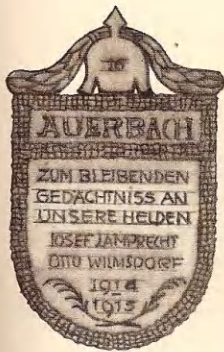 16
AUERBACH
ZUM BLEIBENDEN
GEDÄCHTNISS AN
UNSERE HELDEN
IOSEF LAMPRECHT
OTTO WILMSDORF
1914
1915